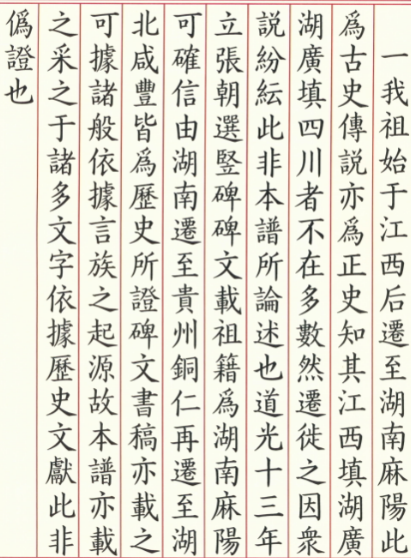 一我祖始于江西后遷至湖南麻陽此
爲古史傳説亦爲正史知其江西填湖廣
湖廣填四川者不在多數然遷徙之因衆
説紛紜此非本譜所論述也道光十三年
立張朝選竪碑碑文載祖籍爲湖南麻陽
可確信由湖南遷至貴州銅仁再遷至湖
北咸豐皆爲歷史所證碑文書稿亦載之
可據諸般依據言族之起源故本譜亦載
之采之于諸多文字依據歷史文獻此非
僞證也